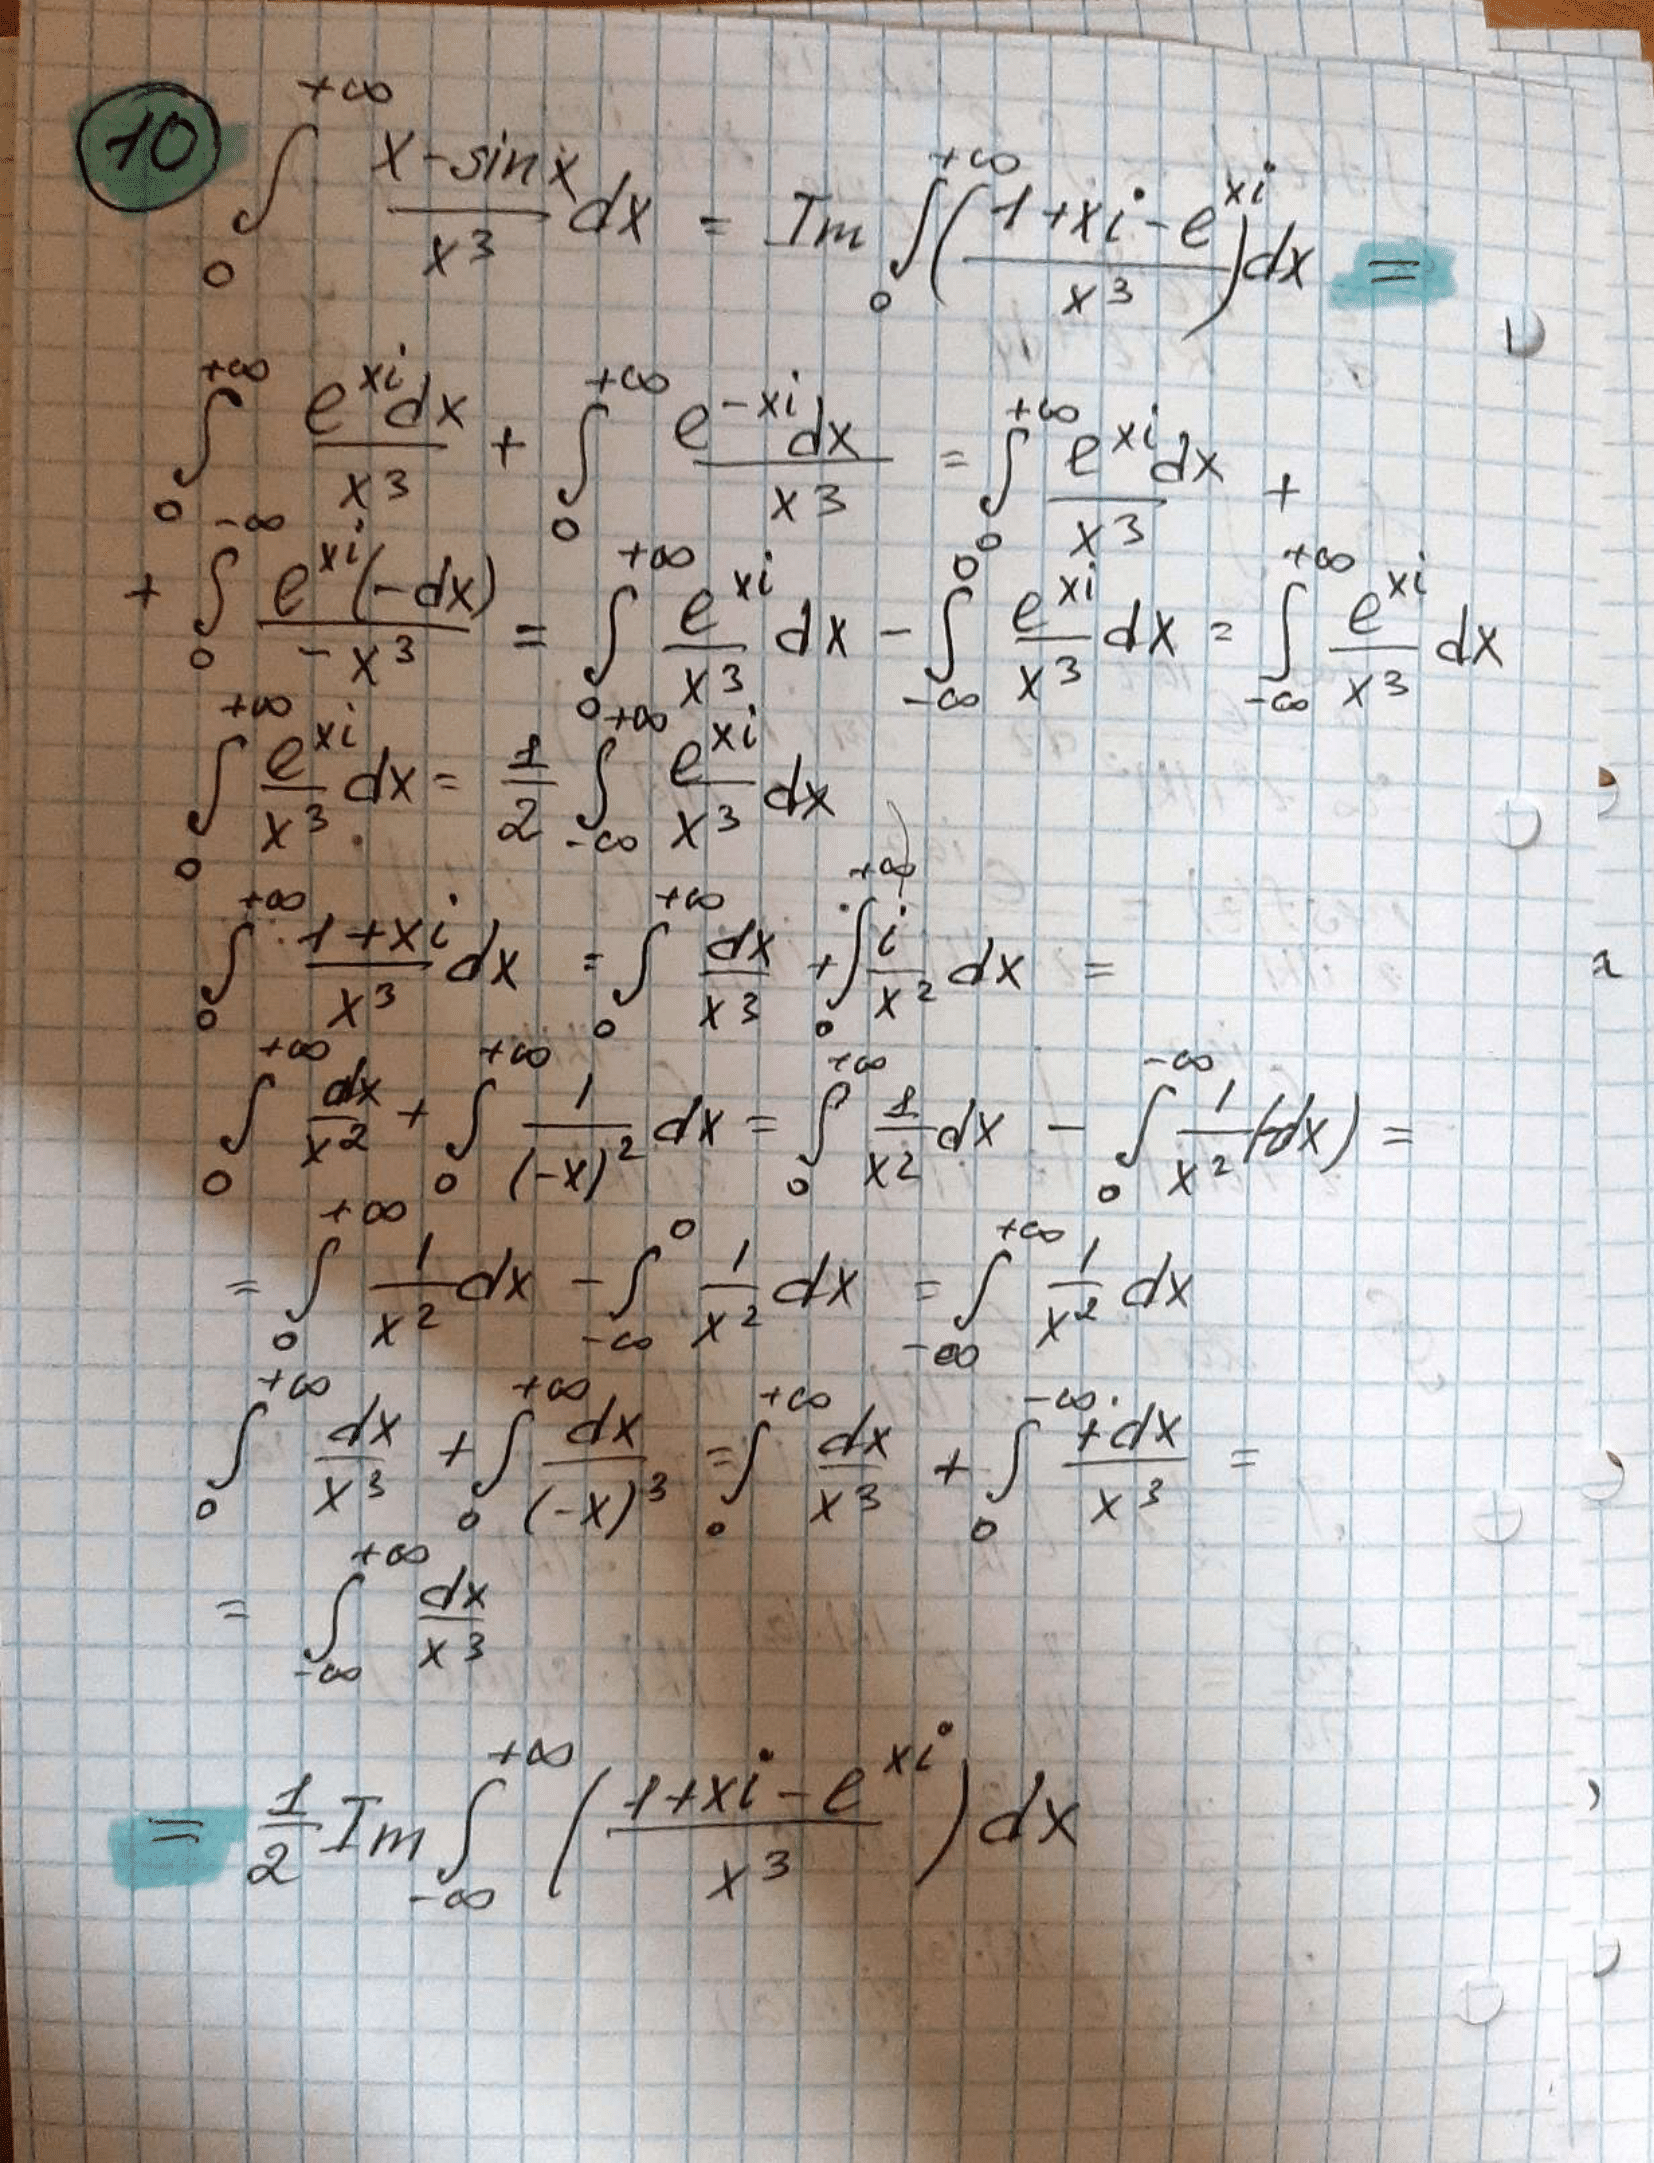 10 ∫₀^{+∞} (x - sin x)/x³ dx = Im ∫₀^{+∞} ((1 + xi - e^{xi})/x³) dx =
∫₀^{+∞} e^{xi}dx/x³ + ∫₀^{+∞} e^{-xi}dx/x³ = ∫₀^{+∞} e^{xi}dx/x³ +
+ ∫₀^{-∞} e^{xi}(-dx)/(-x³) = ∫₀^{+∞} e^{xi}/x³ dx - ∫_{-∞}^{0} e^{xi}/x³ dx = ∫_{-∞}^{+∞} e^{xi}/x³ dx
∫₀^{+∞} e^{xi}/x³ dx = 1/2 ∫_{-∞}^{+∞} e^{xi}/x³ dx
∫₀^{+∞} (1 + xi)/x³ dx = ∫₀^{+∞} dx/x³ + ∫₀^{+∞} i/x² dx =
∫₀^{+∞} dx/x² + ∫₀^{+∞} 1/(-x)² dx = ∫₀^{+∞} 1/x² dx - ∫₀^{-∞} 1/x² (-dx) =
= ∫₀^{+∞} 1/x² dx - ∫_{-∞}^{0} 1/x² dx = ∫_{-∞}^{+∞} 1/x² dx
∫₀^{+∞} dx/x³ + ∫₀^{+∞} dx/(-x)³ = ∫₀^{+∞} dx/x³ + ∫₀^{-∞} +dx/x³ =
= ∫_{-∞}^{+∞} dx/x³
= 1/2 Im ∫_{-∞}^{+∞} ((1 + xi - e^{xi})/x³) dx